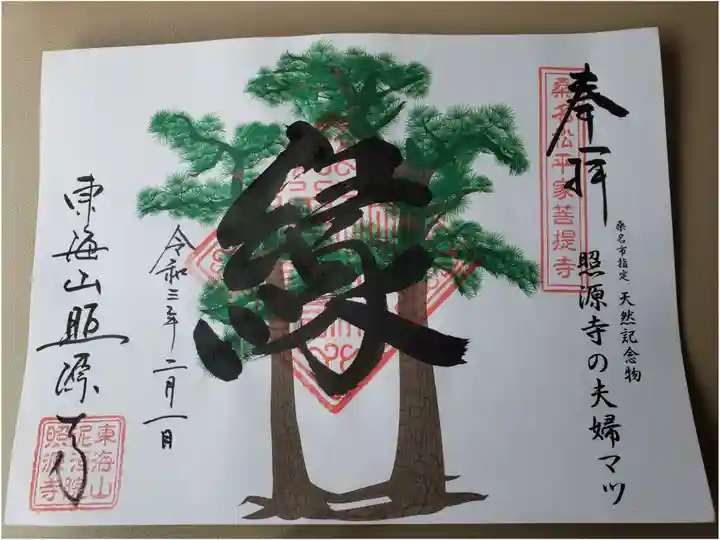 奉拝
桑名松平家菩提寺
桑名市指定 天然記念物
照源寺の夫婦マツ
縁
令和三年 二月一日
東海山照源寺
東海山
泥洹院
照源寺